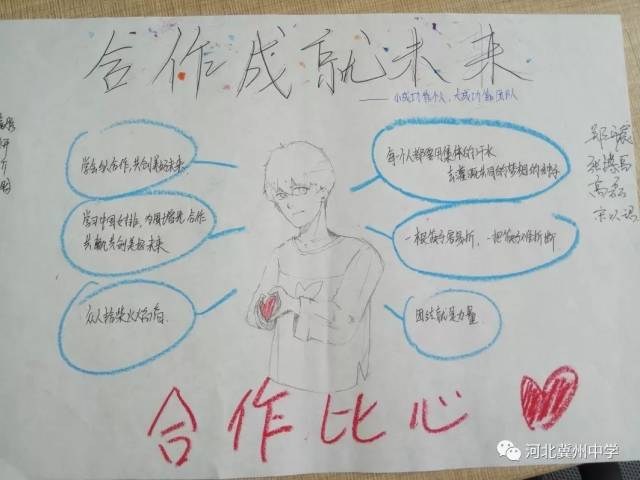 合作成就未来
——小成功靠个人,大成功靠团队
学会以合作,共创美好未来
学习中国女排,为国增光 合作
共赢共创美好未来
众人拾柴火火焰高
每个人都要用集体的汗水
去灌溉共同的梦想的种子
一根筷子容易折,一把筷子难折断
团结就是力量
高磊
合作比心
河北冀州中学